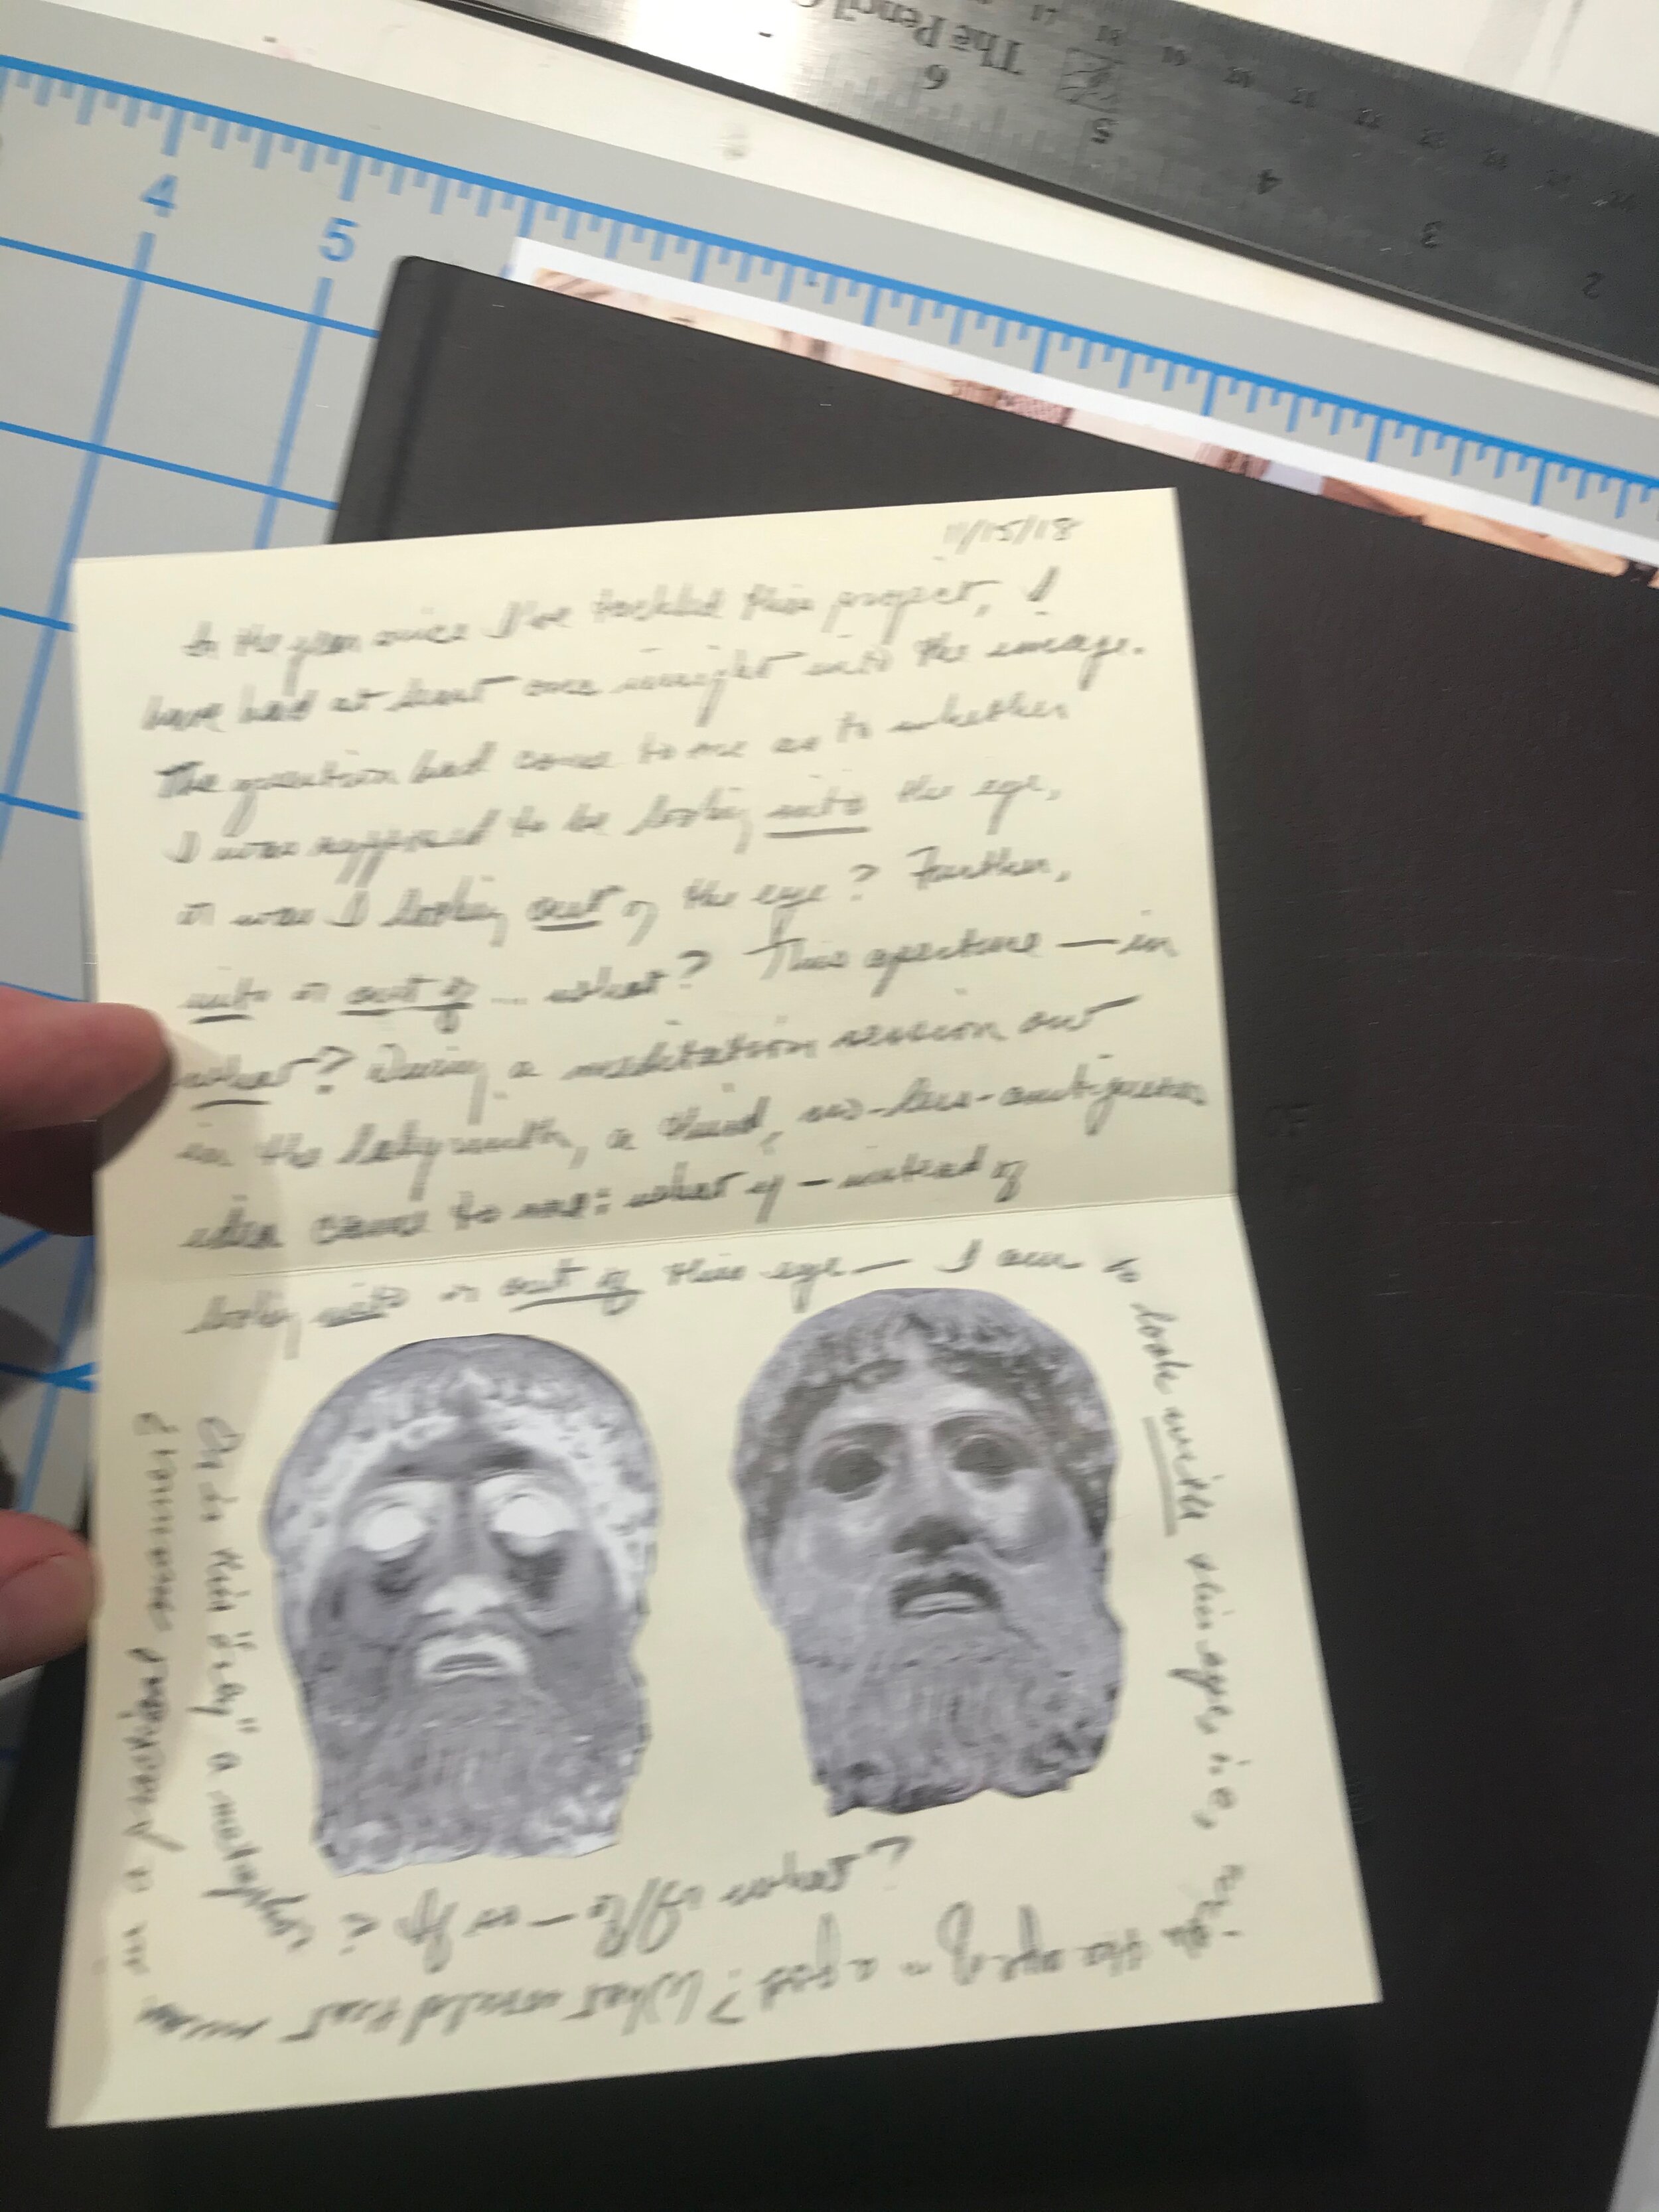 11/15/18
In the year since I've tackled this project, I
have had at least one insight into the image.
The question had come to me as to whether
I was supposed to be looking into the eye,
or was I looking out of the eye? Further,
into or out of ... what? This aperture — in
what? During a meditation session out
in the labyrinth, a third, no-less-ambiguous
idea came to me: what if — instead of
looking into or out of this eye — I am to
look with this eye, i.e.,
the eye of a god? What would that mean
in a practical manner?
Or is this "eye" a metaphor? If so — of/for what?
4
5
The Pencil
6
5
4
3
2